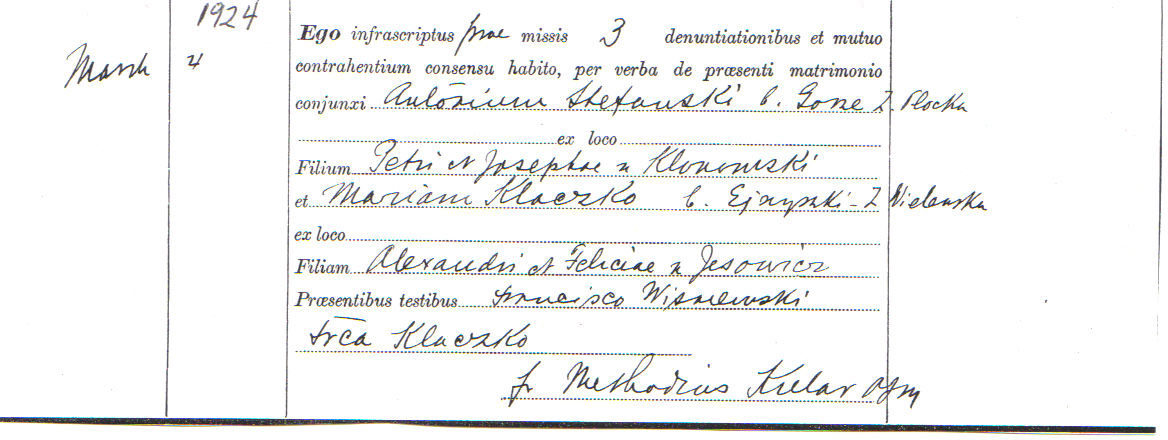 1924
March 4
Ego infrascriptus prae missis 3 denuntiationibus et mutuo
contrahentium consensu habito, per verba de præsenti matrimonio
conjunxi Antōnium Stefanski b. Gorze Z. Plocka
ex loco
Filium Petri et Josephae n Klonowski
et Mariam Klaczko b. Ejszyszki - Z Wielenska
ex loco
Filiam Alexandri et Feliciae n Jesowicz
Præsentibus testibus Francisco Wisniewski
Frca Klaczko
fr Methodius Kielar ofm